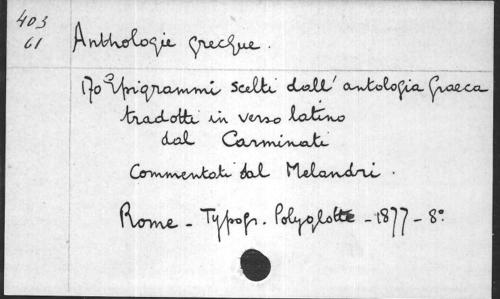 403
61
Anthologie grecque.
170 Epigrammi scelti dall' antologia Graeca
tradotti in verso latino
dal Carminati
Commentati dal Melandri.
Rome - Typogr. Polyglotte - 1877 - 8°